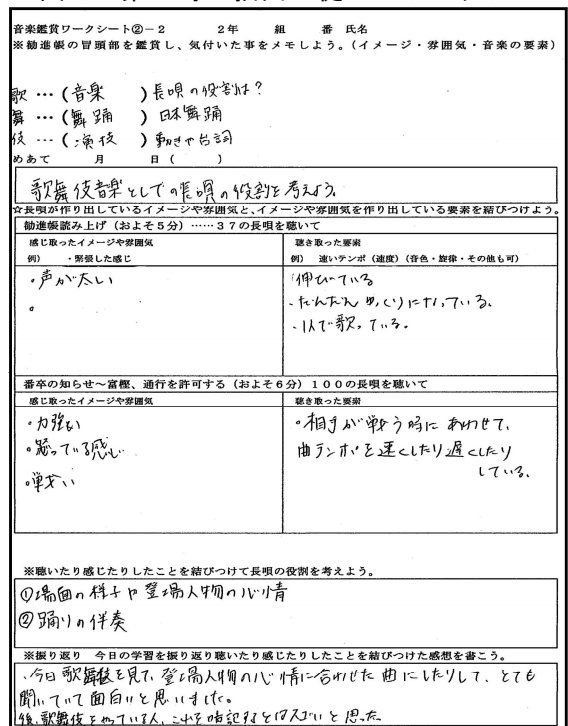 音楽鑑賞ワークシート②-2　2年　組　番 氏名
※勧進帳の冒頭部を鑑賞し、気付いた事をメモしよう。(イメージ・雰囲気・音楽の要素)
歌 …(音楽　)長唄の役割は?
舞 …(舞踊　)日本舞踊
伎 …(演技　)動きや台詞
めあて　月　日(　)
歌舞伎音楽としての長唄の役割を考えよう。
☆長唄が作り出しているイメージや雰囲気と、イメージや雰囲気を作り出している要素を結びつけよう。
勧進帳読み上げ(およそ5分)……37の長唄を聴いて
感じ取ったイメージや雰囲気
例)　・緊張した感じ
・声が太い
聴き取った要素
例)　速いテンポ(速度)(音色・旋律・その他も可)
・伸びている
・だんだんゆっくりになっている。
・1人で歌っている。
番卒の知らせ～富樫、通行を許可する(およそ6分)100の長唄を聴いて
感じ取ったイメージや雰囲気
・力強い
・怒っている感じ
・戦い
聴き取った要素
・相手が戦う時にあわせて、
曲テンポを速くしたり遅くしたり
している。
※聴いたり感じたりしたことを結びつけて長唄の役割を考えよう。
①場面の様子や登場人物の心情
②踊りの伴奏
※振り返り　今日の学習を振り返り聴いたり感じたりしたことを結びつけた感想を書こう。
・今日歌舞伎を見て、登場人物の心情に合わせた曲にしたりして、とても
聞いていて面白いと思いました。
後、歌舞伎をやっている人、これを暗記するとはスゴいと思った